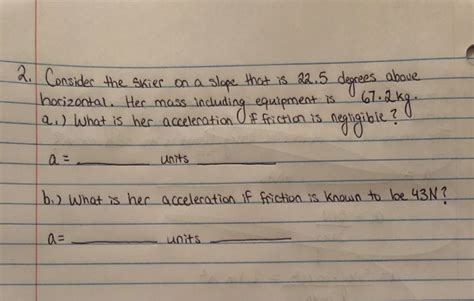 2. Consider the skier on a slope that is 22.5 degrees above
horizontal. Her mass including equipment is 67.2kg.
a.) What is her acceleration if friction is negligible?
a= ________ units ________
b.) What is her acceleration if friction is known to be 43N?
a= ________ units ________